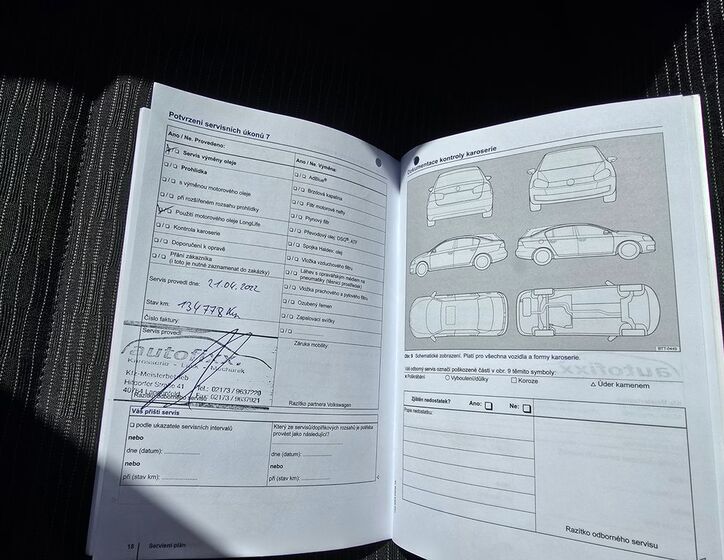 Potvrzení servisních úkonů 7
Ano / Ne. Provedeno:
Servis výměny oleje
Prohlídka
s výměnou motorového oleje
při rozšířeném rozsahu prohlídky
Použití motorového oleje LongLife
Kontrola karoserie
Doporučení k opravě
Přání zákazníka
(i toto je nutné zaznamenat do zakázky)
Servis proveden dne: 21.04.2022
Stav km: 134778 Km
Číslo faktury:
Servis provedl
autofixx
Karosserie - Lack - Mechanik
Kfz-Meisterbetrieb
Tel.: 02173 /
40764 Langenfeld Fax: 02173 / 9637921
Ano / Ne. Výměna:
AdBlue®
Brzdová kapalina
Filtr motorové nafty
Plynový filtr
Převodový olej: DSG®, ATF
Spojka Haldex: olej
Vložka vzduchového filtru
Láhev s opravářským médiem na
pneumatiky (těsnicí prostředek)
Vložka prachového a pylového filtru
Ozubený řemen
Zapalovací svíčky
Záruka mobility
Razítko partnera Volkswagen
Váš příští servis
podle ukazatele servisních intervalů
nebo
dne (datum):
nebo
při (stav km):
Který ze servisů/doplňkových rozsahů je potřeba
provést jako následující?
dne (datum):
nebo
při (stav km):
18 Servisní plán
Dokumentace kontroly karoserie
BTT-0449
Obr. 9 Schematické zobrazení. Platí pro všechna vozidla a formy karoserie.
Váš odborný servis označí poškozené části v obr. 9 těmito symboly:
× Poškrábání ○ Vyboulení/důlky □ Koroze △ Úder kamenem
Zjištěn nedostatek? Ano: Ne:
Popis nedostatku:
Razítko odborného servisu